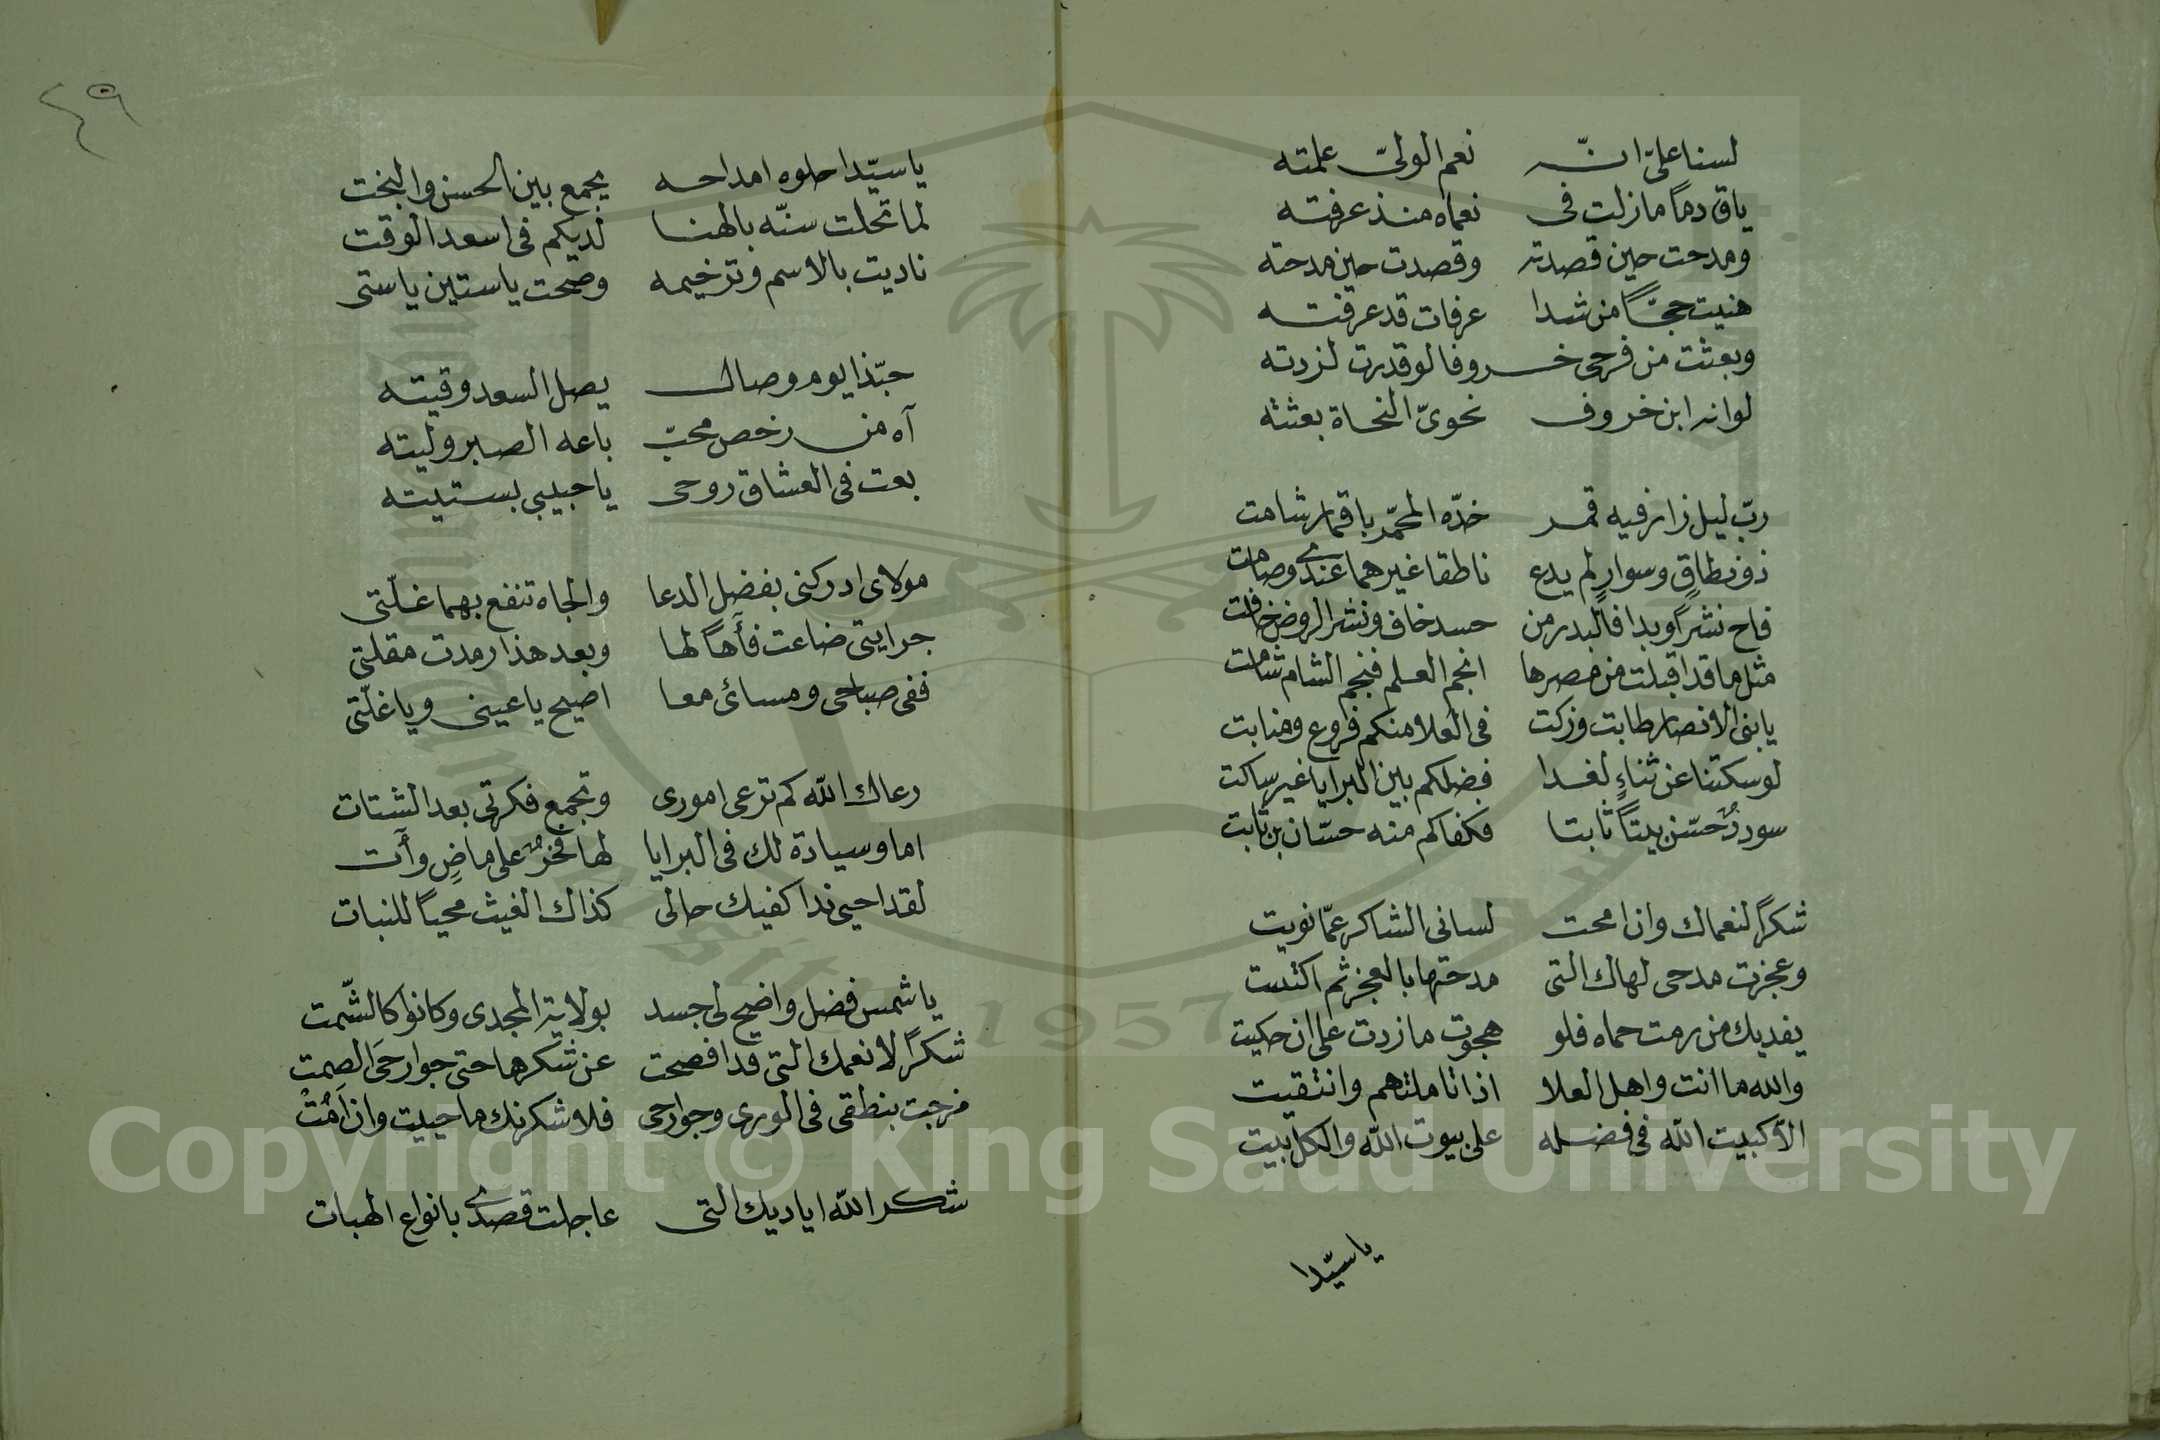 لسنا علىّ انّه نعم الولىّ علمته
ياق دما مازلت فى نعماه منذ عرفته
ومدحت حين قصدته وقصدت حين مدحته
هنيت حجّاً من شدا عرفات قد عرفته
وبعثت من فرحى خروفا لو قدرت لزدته
لو انه ابن خروف نحوىّ النحاة بعثته
ربّ ليل زار فيه قمر خدّه المحمّر باقمار شامت
ذو نطاقٍ وسوارٍ لم يدع ناطقا غيرهما عندى وصامت
فاح نشراً وبدا فالبدر من حسد خاف ونشر الروض خافت
مثل ما قد اقبلت من مصرها انجم العلم فنجم الشام شامت
يا بنى الانصار طابت وزكت فى العلا منكم فروع ومنابت
لو سكتنا عن ثناءٍ لغدا فضلكم بين البرايا غير ساكت
سوددٌ حسّن بيتاً ثابتا فكفاكم منه حسّان بن ثابت
شكراً لنعماك وان امحت لسانى الشاكر عمّا نويت
وعجزت مدحى لهاك التى مدحتها بالعجز ثم اكتفيت
يفديك من رمت حماه فلو هجوت ما زدت على ان حكيت
والله ما انت واهل العلا اذا تاملتهم وانتقيت
الاّ كبيت الله فى فضله على بيوت الله والكل بيت
يا سيّدا
٤٩
يا سيّدا حلوه امداحه يجمع بين الحسن والبخت
لما تحلت سنّه بالهنا لديكم فى اسعد الوقت
ناديت بالاسم وترخيمه وصحت ياستين ياستى
حبّذا يوم وصال يصل السعد وقيته
آه من رخص محبّ باعه الصبر وليته
بعت فى العشاق روحى يا حبيبى بستيته
مولاى ادركنى بفضل الدعا والجاه تنفع بهما غلّتى
جرايتى ضاعت فآهاً لها وبعد هذا رمدت مقلتى
ففى صباحى ومسائى معا اصيح يا عينى ويا غلّتى
رعاك الله كم ترعى امورى وتجمع فكرتى بعد الشتات
اما وسيادة لك فى البرايا لها فخرٌ على ماضٍ وآت
لقد احيى ندا كفيك حالى كذاك الغيث محياً للنبات
يا شمس فضل واضح لى جسد بولاية المجدى وكانوا كالشّمت
شكراً لانعمك التى قد افصحت عن شكرها حتى جوارحى الصمت
مزجت بنطقى فى الورى وجوارحى فلاشكرنك ما حييت وان اَمُتْ
شكر الله اياديك التى عاجلت قصدى بانواع الهبات
Copyright © King Saud University
1957